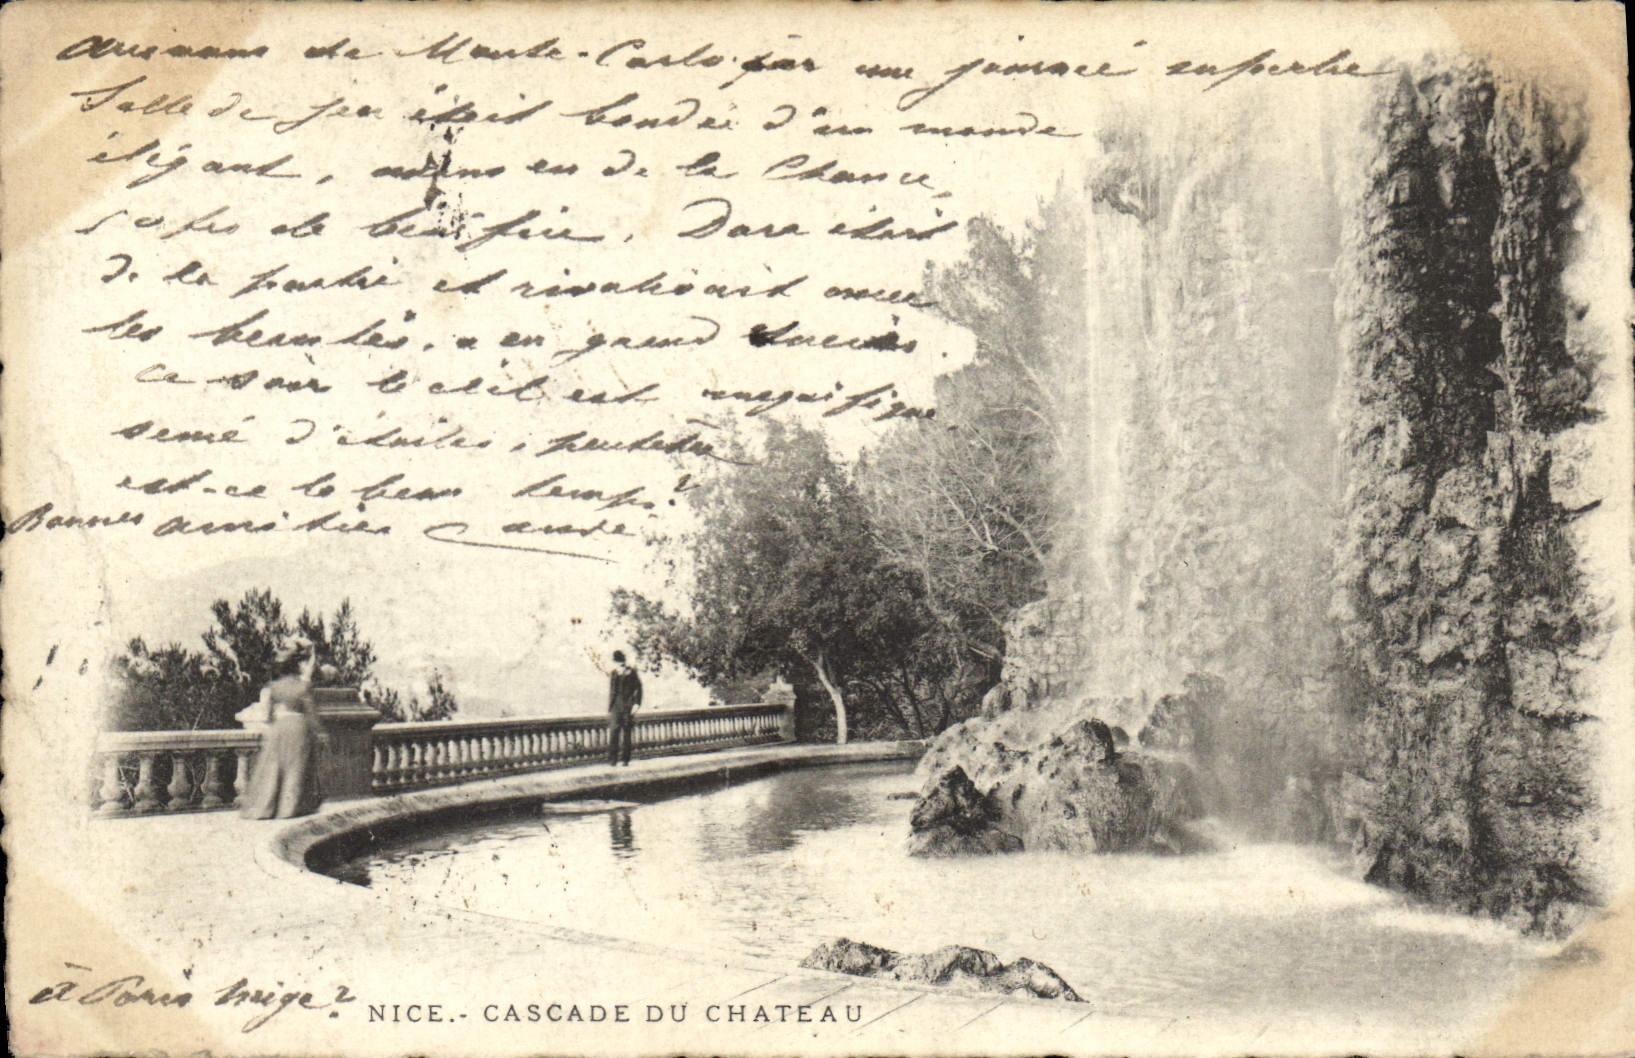 Arrivons de Monte-Carlo par une journée superbe
Salle de jeu était bondée d'un monde
élégant, avons eu de la Chance,
50 frs de bénéfice. Dora était
de la partie et rivalisait avec
les beautés, a eu grand succès.
Ce soir le ciel est magnifique
semé d'étoiles, peutêtre
est-ce le beau temps?
Bonnes amitiés
à Paris neige?
NICE.- CASCADE DU CHATEAU